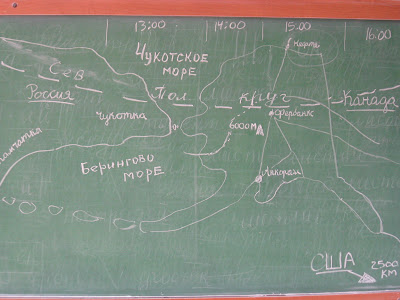 13:00 14:00 15:00 16:00
Чукотское
море
Сев
Пол
круг
Россия
Канада
Чукотка
6000м
Фербанкс
Берингово
море
США
2500
км